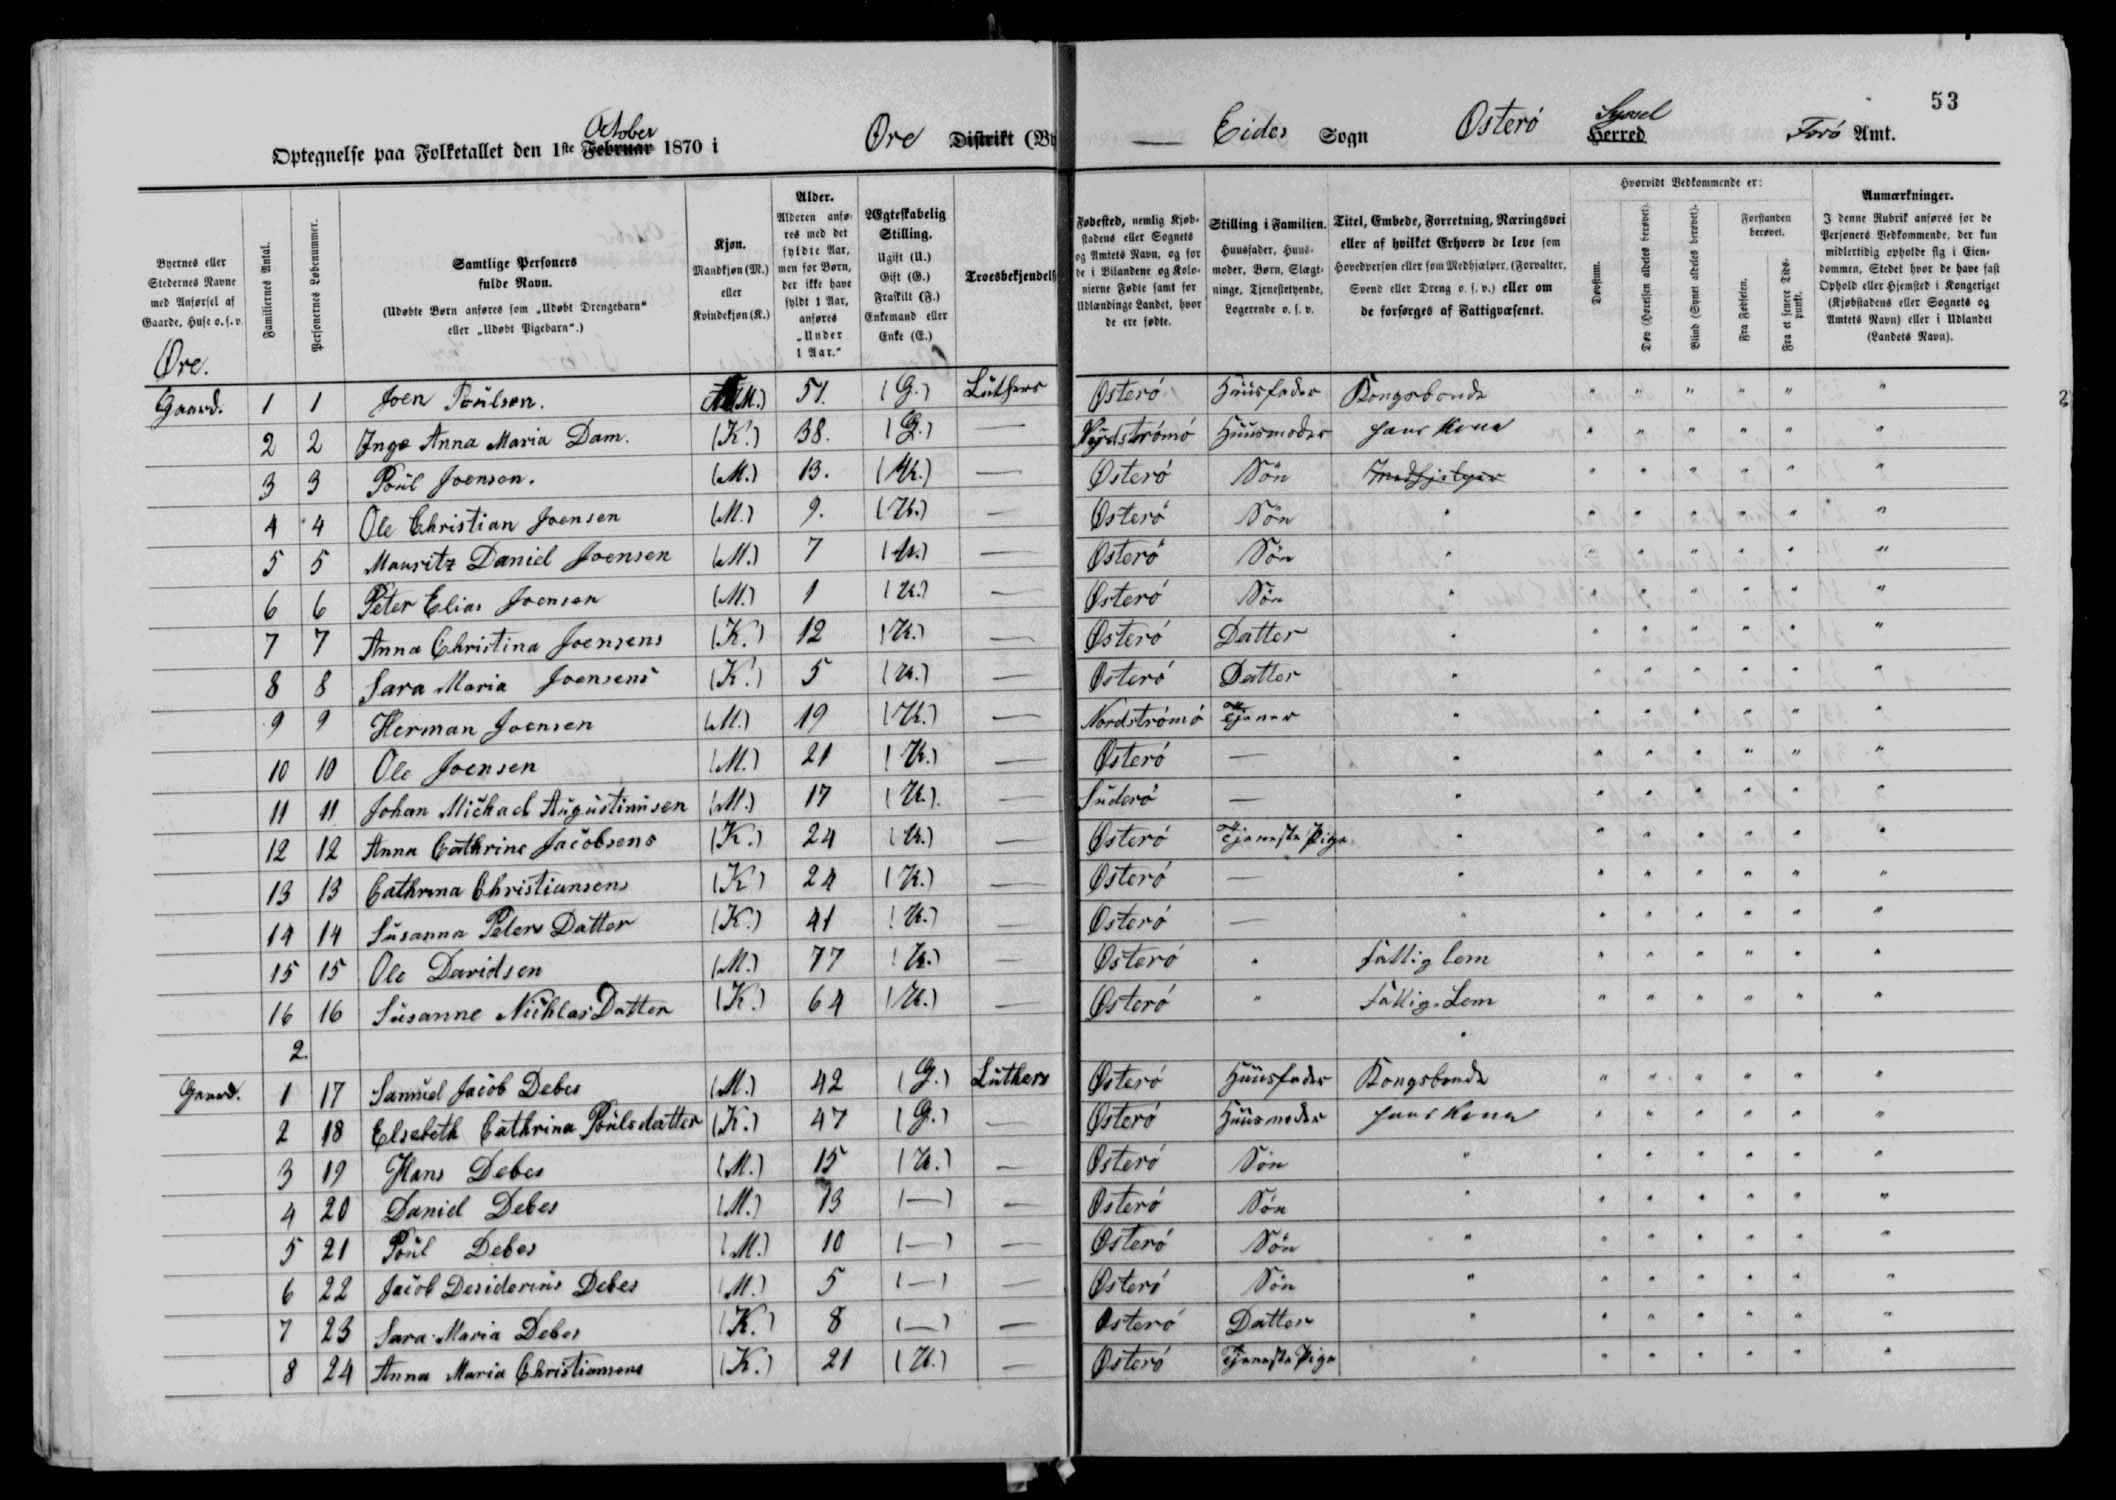 53
Optegnelse paa Folketallet den 1ste Februar October 1870 i Øre Distrikt (By — Eides Sogn Østerö Herred Syssel Færö Amt.
Byernes eller Stedernes Navne med Anførsel af Gaarde, Huse o. s. v.
Familiernes Antal.
Personernes Løbenummer.
Samtlige Personers fulde Navn.
(Udøbte Børn anføres som „Udøbt Drengebarn“ eller „Udøbt Pigebarn“.)
Kjøn.
Mandkjøn (M.) eller Kvindekjøn (K.)
Alder.
Alderen anføres med det fyldte Aar, men for Børn, der ikke have fyldt 1 Aar, anføres „Under 1 Aar.“
Ægteskabelig Stilling.
Ugift (U.)
Gift (G.)
Fraskilt (F.)
Enkemand eller Enke (E.)
Troesbekjendels
Fødested, nemlig Kjøbstadens eller Sognets og Amtets Navn, og for de i Bilandene og Kolonierne Fødte samt for Udlændinge Landet, hvor de ere fødte.
Stilling i Familien.
Huusfader, Huusmoder, Børn, Slægtninge, Tjenestetyende, Logerende o. s. v.
Titel, Embede, Forretning, Næringsvei eller af hvilket Erhverv de leve som Hovedperson eller som Medhjælper, (Forvalter, Svend eller Dreng o. s. v.) eller om de forsørges af Fattigvæsenet.
Hvorvidt Vedkommende er:
Døvstum.
Døv (Hørelsen aldeles berøvet).
Blind (Synet aldeles berøvet).
Forstanden berøvet.
Fra Fødselen.
Fra et senere Tidspunkt.
Anmærkninger.
I denne Rubrik anføres for de Personers Vedkommende, der kun midlertidig opholde sig i Eiendommen, Stedet hvor de have fast Ophold eller Hjemsted i Kongeriget (Kjøbstadens eller Sognets og Amtets Navn) eller i Udlandet (Landets Navn).
Øre.
Gaard. 1 1 Joen Poülsen. (M.) 51. (G.) Lüthers Østerö Hüüsfader Kongsbonde " " " " " "
2 2 Inge Anna Maria Dam. (K.) 38. (G.) — Nordströmö Hüüsmoder hans Kone " " " " " "
3 3 Poül Joensen. (M.) 13. (U.) — Østerö Sön Medhjelper " " " " " "
4 4 Ole Christian Joensen (M.) 9. (U.) — Østerö Sön " " " " " " "
5 5 Mauritz Daniel Joensen (M.) 7 (U.) — Østerö Sön " " " " " " "
6 6 Peter Elias Joensen (M.) 1 (U.) — Østerö Sön " " " " " " "
7 7 Anna Christina Joensens (K.) 12 (U.) — Østerö Datter " " " " " " "
8 8 Sara Maria Joensens (K.) 5 (U.) — Østerö Datter " " " " " " "
9 9 Herman Joensen (M.) 19 (U.) — Nordströmö Tjener " " " " " " "
10 10 Ole Joensen (M.) 21 (U.) — Østerö — " " " " " " "
11 11 Johan Michael Augüstinüsen (M.) 17 (U.) — Süderö — " " " " " " "
12 12 Anna Cathrine Jacobsens (K.) 24 (U.) — Østerö Tjeneste Pige " " " " " " "
13 13 Cathrina Christiansens (K.) 24 (U.) — Østerö — " " " " " " "
14 14 Süsanna Peters Datter (K.) 41 (U.) — Østerö — " " " " " " "
15 15 Ole Davidsen (M.) 77 (U.) — Østerö " Fattig lem " " " " " "
16 16 Süsanne Nichlas Datter (K.) 64 (U.) — Østerö " Fattig-Lem " " " " " "
2.
Gaard. 1 17 Samüel Jacob Debes (M.) 42 (G.) Lüthers Østerö Hüüsfader Kongsbonde " " " " " "
2 18 Elsebeth Cathrina Poülsdatter (K.) 47 (G.) — Østerö Hüüsmoder hans Kone " " " " " "
3 19 Hans Debes (M.) 15 (U.) — Østerö Sön " " " " " " "
4 20 Daniel Debes (M.) 13 (—) — Østerö Sön " " " " " " "
5 21 Poül Debes (M.) 10 (—) — Østerö Sön " " " " " " "
6 22 Jacob Desiderius Debes (M.) 5 (—) — Østerö Sön " " " " " " "
7 23 Sara Maria Debes (K.) 8 (—) — Østerö Datter " " " " " " "
8 24 Anna Maria Christiansens (K.) 21 (U.) — Østerö Tjeneste Pige " " " " " " "